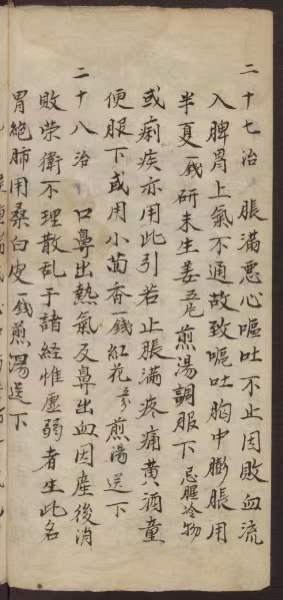 二十七治 脹滿惡心嘔吐不止因敗血流
入脾胃上氣不通故致嘔吐胸中膨脹用
半夏一錢研末生姜五片煎湯調服下忌腥冷物
或痢疾亦用此引若止脹滿疼痛黄酒童
便服下或用小茴香一錢紅花煎湯送下
二十八治 口鼻出熱氣及鼻出血因産後消
敗荣衛不理散乱于諸經惟虛弱者生此名
胃絶肺用桑白皮一錢煎湯送下